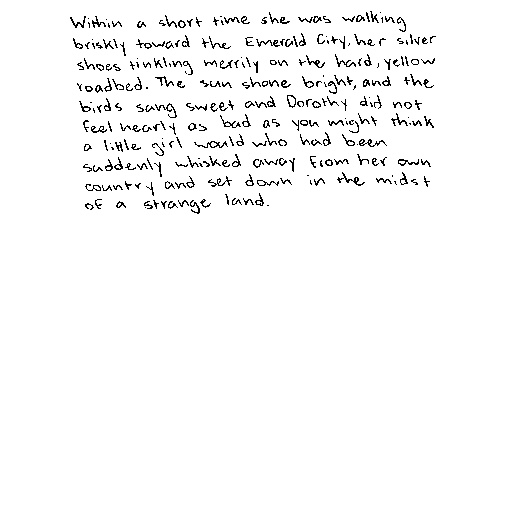 Within a short time she was walking
briskly toward the Emerald City, her silver
shoes tinkling merrily on the hard, yellow
roadbed. The sun shone bright, and the
birds sang sweet and Dorothy did not
feel nearly as bad as you might think
a little girl would who had been
suddenly whisked away from her own
country and set down in the midst
of a strange land.